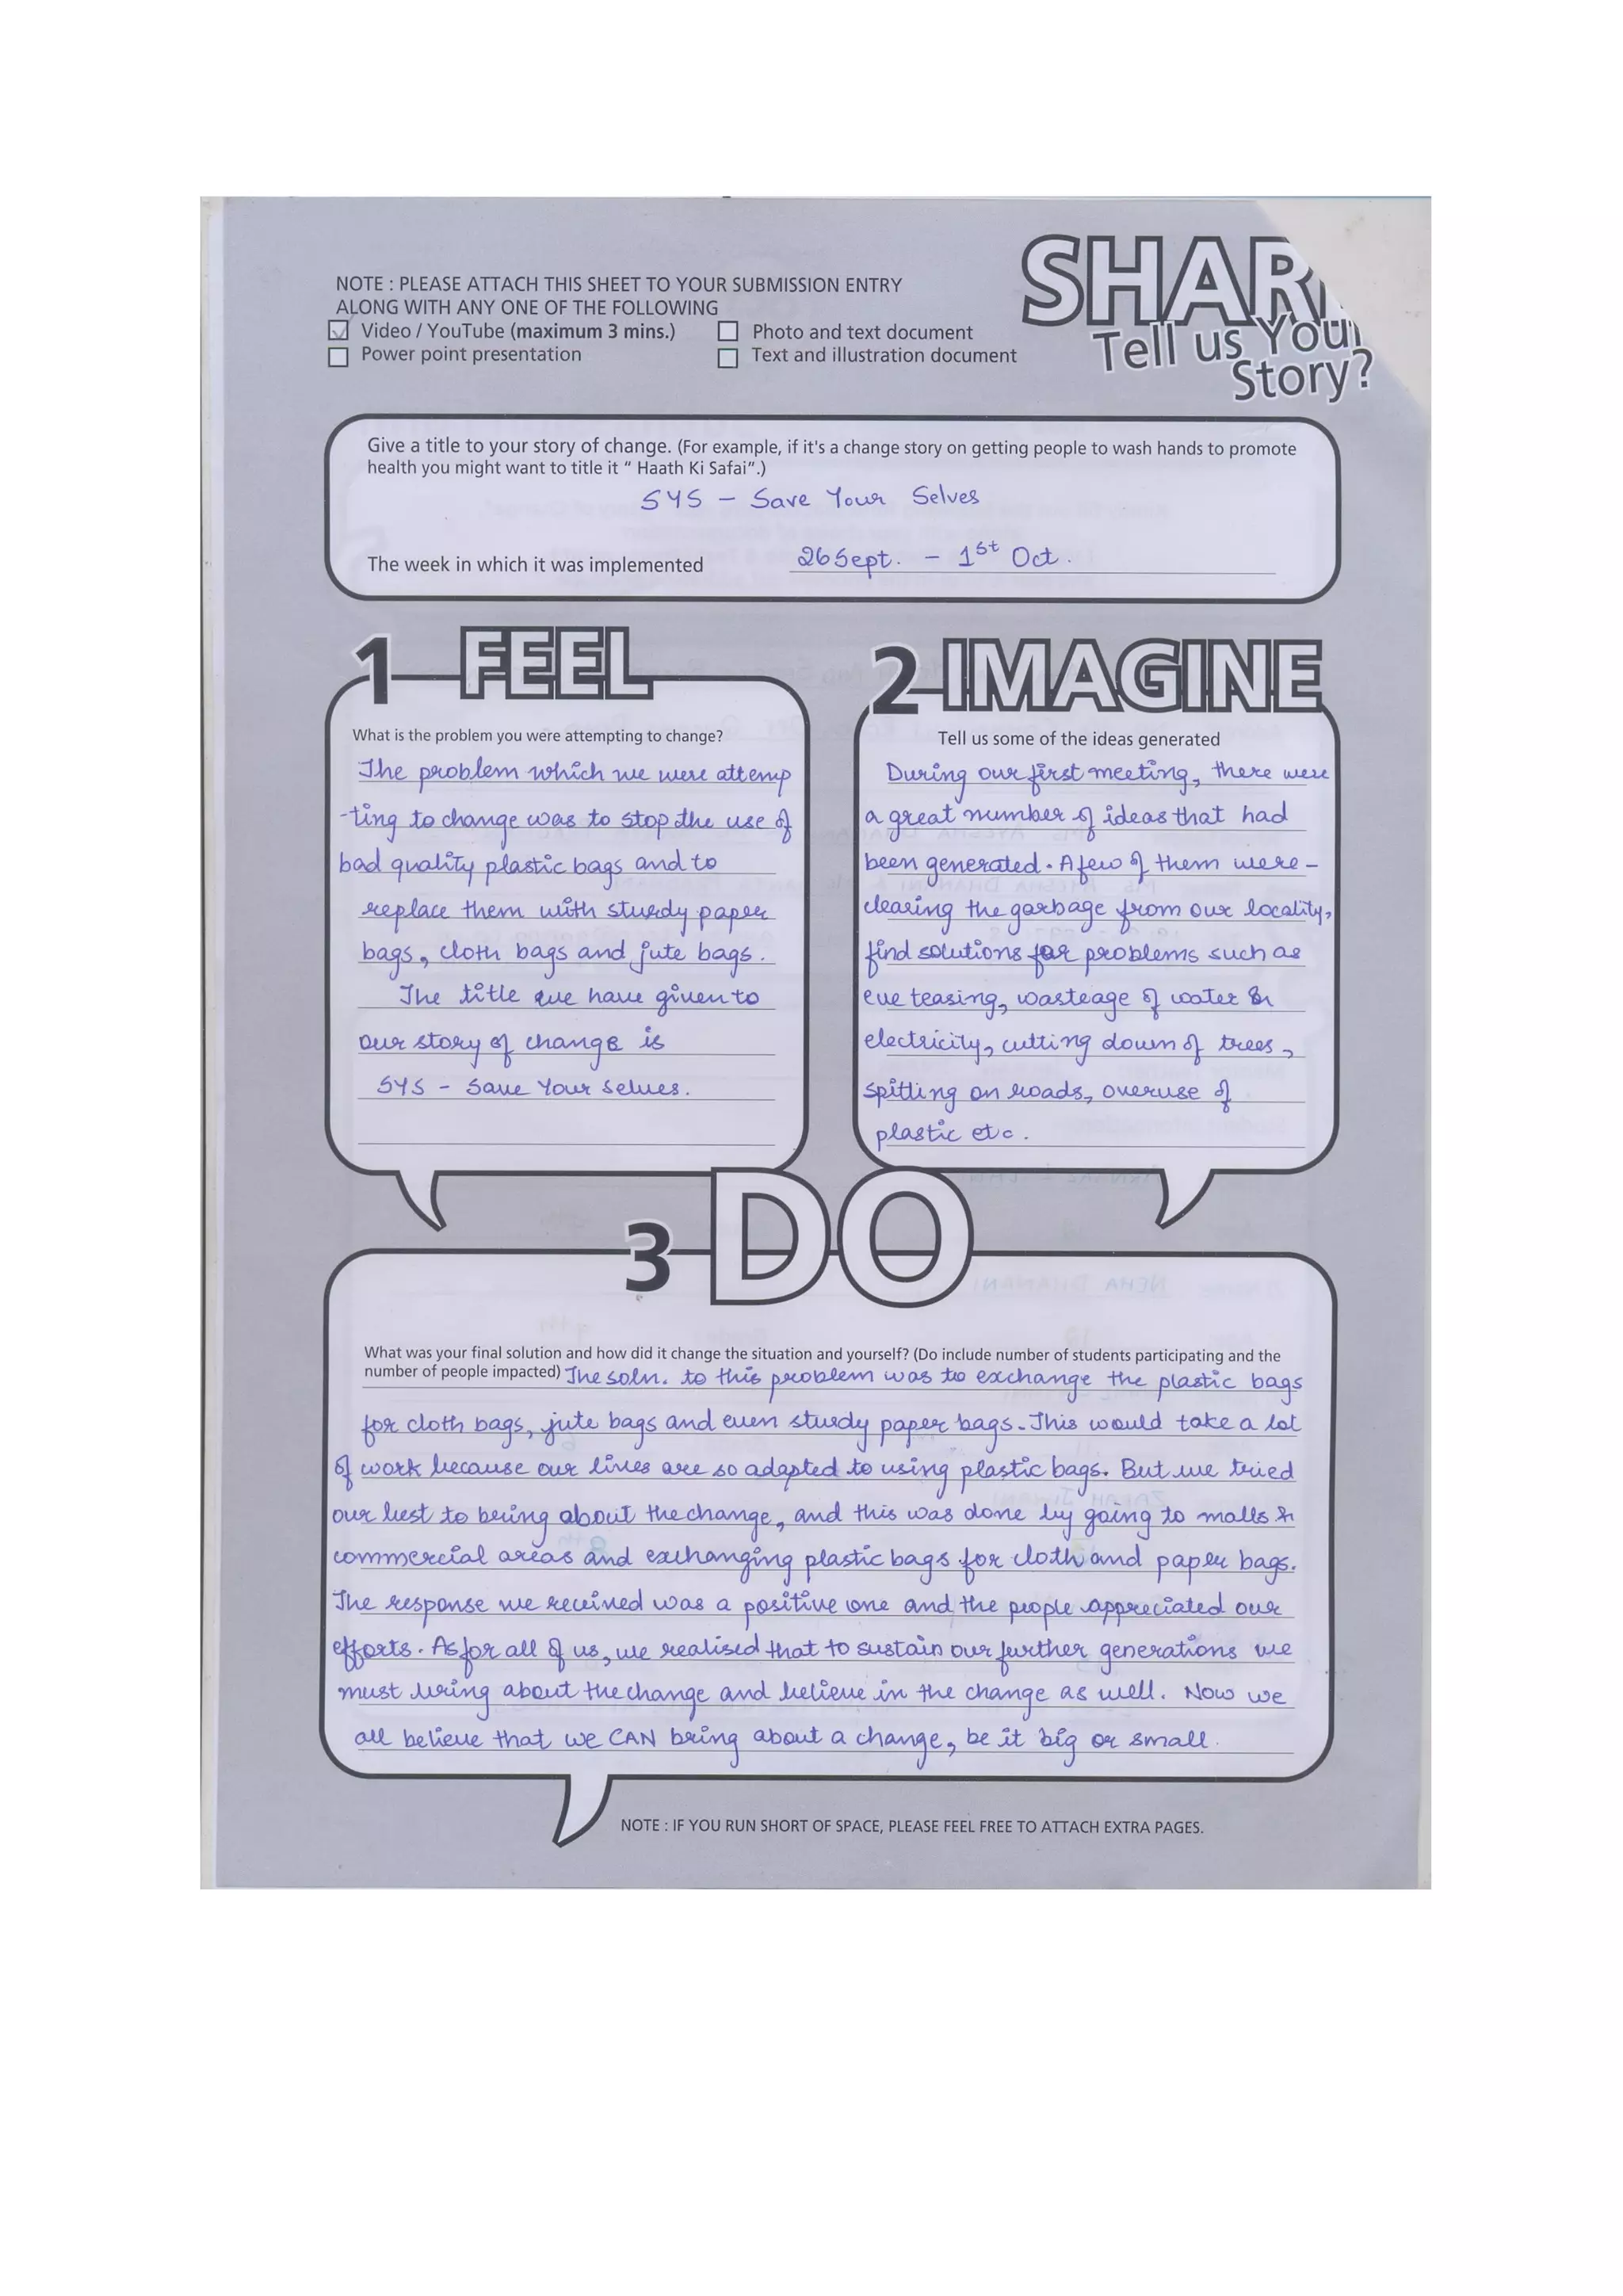 SHAR
Tell us Your
Story?
NOTE : PLEASE ATTACH THIS SHEET TO YOUR SUBMISSION ENTRY
ALONG WITH ANY ONE OF THE FOLLOWING
Video / YouTube (maximum 3 mins.)
Photo and text document
Power point presentation
Text and illustration document
Give a title to your story of change. (For example, if it's a change story on getting people to wash hands to promote
health you might want to title it “ Haath Ki Safai”.)
SYS - Save Your Selves
The week in which it was implemented 26 Sept. - 1st Oct.
1 FEEL
What is the problem you were attempting to change?
The problem which we were attemp
-ting to change was to stop the use of
bad quality plastic bags and to
replace them with sturdy paper
bags, cloth bags and jute bags.
The title we have given to
our story of change is
SYS - Save Your Selves.
2 IMAGINE
Tell us some of the ideas generated
During our first meeting, there were
a great number of ideas that had
been generated. A few of them were -
clearing the garbage from our locality,
find solutions for problems such as
eve teasing, wasteage of water &
electricity, cutting down of trees,
spitting on roads, overuse of
plastic etc.
3 DO
What was your final solution and how did it change the situation and yourself? (Do include number of students participating and the
number of people impacted) The soln. to this problem was to exchange the plastic bags
for cloth bags, jute bags and even sturdy paper bags. This would take a lot
of work because our lives are so adapted to using plastic bags. But we tried
our best to bring about the change, and this was done by going to malls &
commercial areas and exchanging plastic bags for cloth and paper bags.
The response we received was a positive one and the people appreciated our
efforts. As for all of us, we realised that to sustain our further generations we
must bring about the change and believe in the change as well. Now we
all believe that we CAN bring about a change, be it big or small.
NOTE : IF YOU RUN SHORT OF SPACE, PLEASE FEEL FREE TO ATTACH EXTRA PAGES.